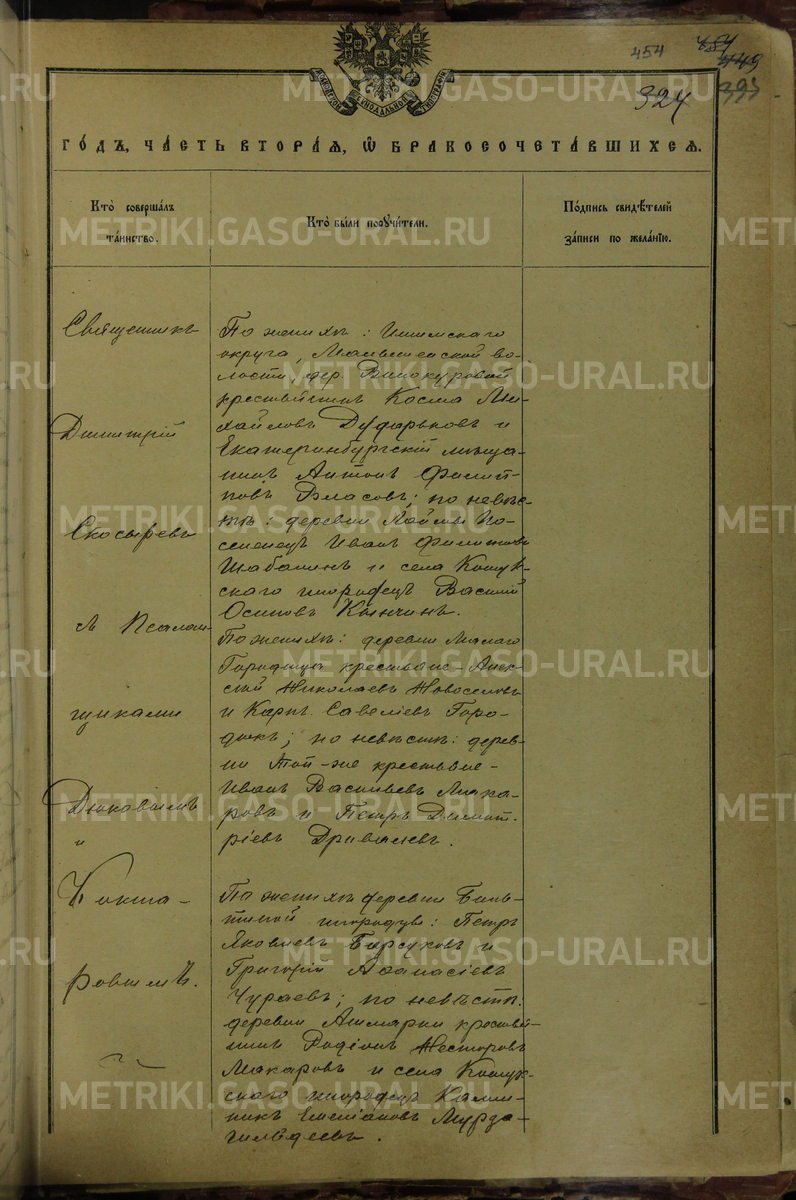 454
324
ГОДЪ, ЧАСТЬ ВТОРАЯ, Ѡ БРАКОСОЧЕТАВШИХСЯ.
Кто совершалъ
таинство.
Кто были поручители.
Подпись свидѣтелей
записи по желанію.
Священникъ
Димитрій
Скосыревъ
съ Псалом-
щиками
Дюковымъ
и
Кокша-
ровымъ.
По женихѣ: Ишимскаго
округа, волости, дер. Винокуровой
крестьянинъ Косма Ми-
хайловъ и
Екатеринбургскій мѣща-
нинъ Антонъ Филип-
повъ Власовъ; по невѣ-
стѣ: деревни по-
селенецъ Иванъ Филиповъ
Шабалинъ и села Кошук-
скаго инородецъ Василій
Осиповъ Кынчинъ.
По женихѣ: деревни Малаго
Городища крестьяне - Алек-
сѣй Николаевъ Новоселовъ
и Карпъ Савеліевъ Горо-
; по невѣстѣ: дерев-
ни той-же крестьяне -
Иванъ Васильевъ Мака-
ровъ и Петръ Димит-
ріевъ
По женихѣ деревни
инородцы: Петръ
Яковлевъ Барсуковъ и
Григорій Аѳанасіевъ
Чураевъ; по невѣстѣ:
деревни Ашмарки крестья-
нинъ Родіонъ Несторовъ
Макаровъ и села Кошук-
скаго инородецъ Калин-
никъ Емеліановъ Мурза-
гильдеевъ.
METRIKI.GASO-URAL.RU